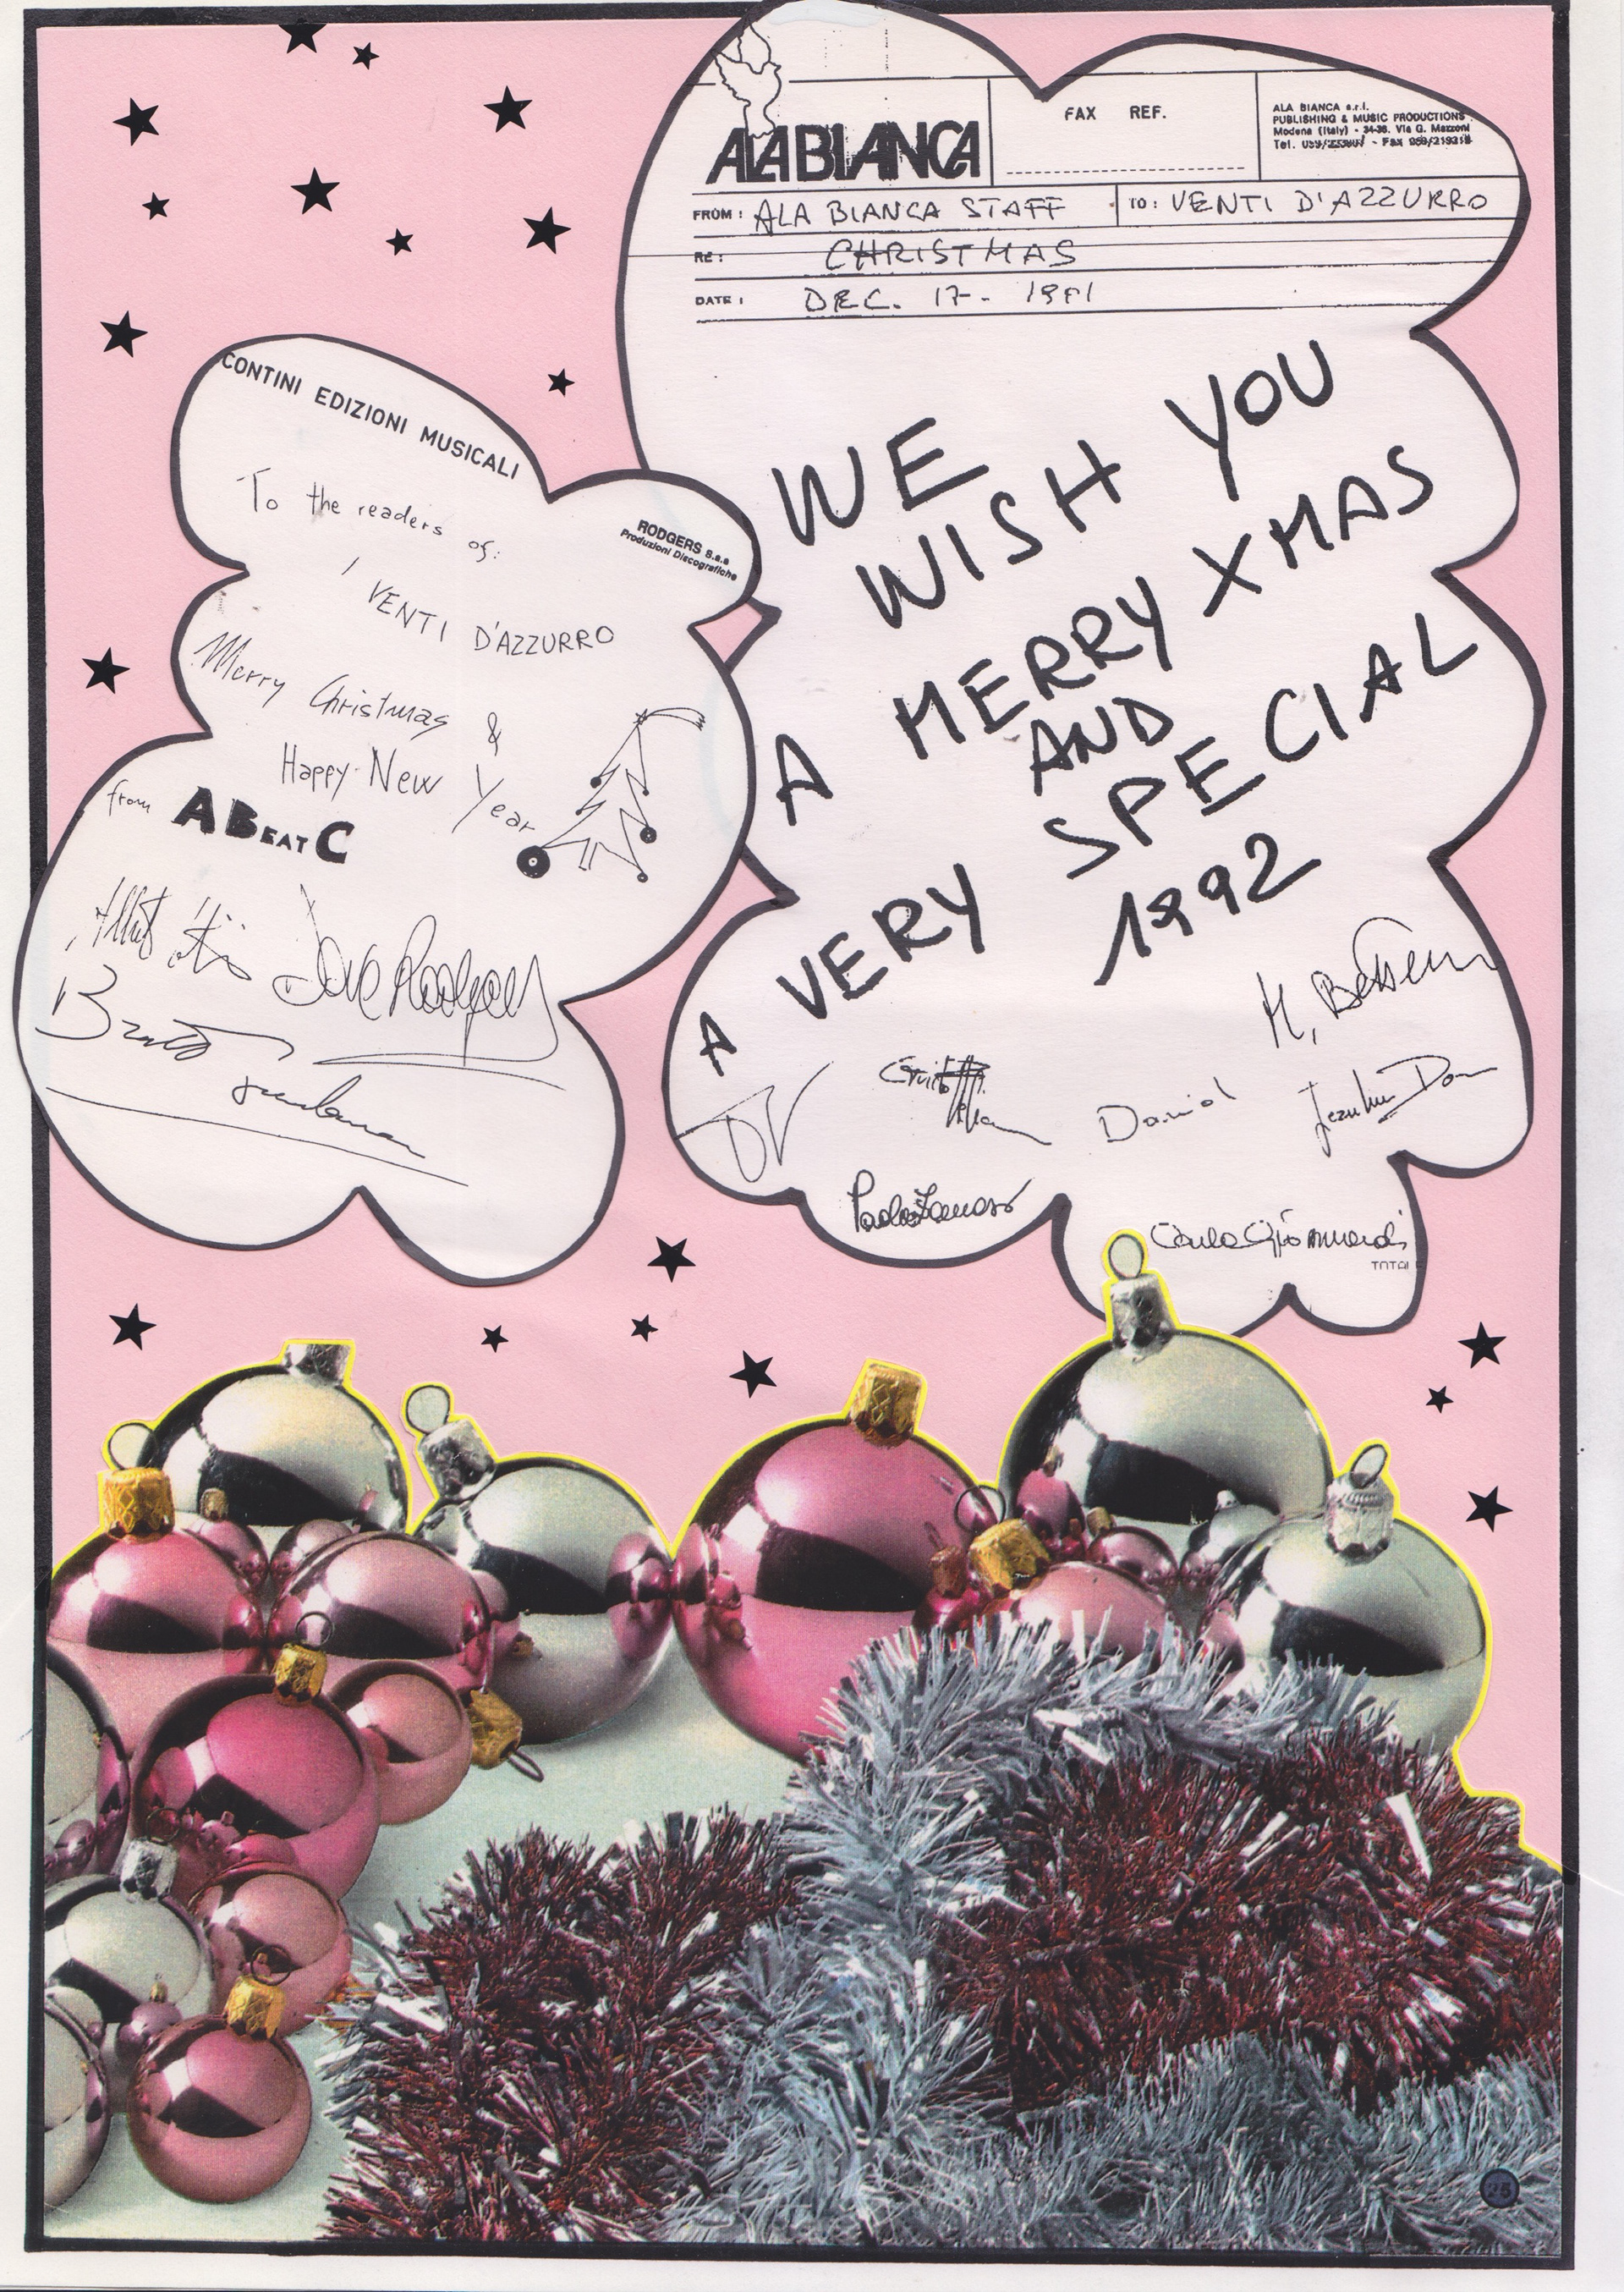 ALA BIANCA
FAX REF.
ALA BIANCA s.r.l.
PUBLISHING & MUSIC PRODUCTIONS
Modena (Italy) - 34-36. Via G. Mazzoni
Tel. - Fax
FROM: ALA BIANCA STAFF
TO: VENTI D'AZZURRO
RE: CHRISTMAS
DATE: DEC. 17- 1991
WE
WISH YOU
A MERRY XMAS
AND
A VERY SPECIAL
1992
M.
Daniel
Paola
Carla
TOTAL
CONTINI EDIZIONI MUSICALI
RODGERS s.a.s
Produzioni Discografiche
To the readers of:
I VENTI D'AZZURRO
Merry Christmas &
Happy New Year
from ABEATC
Dave Rodgers
25